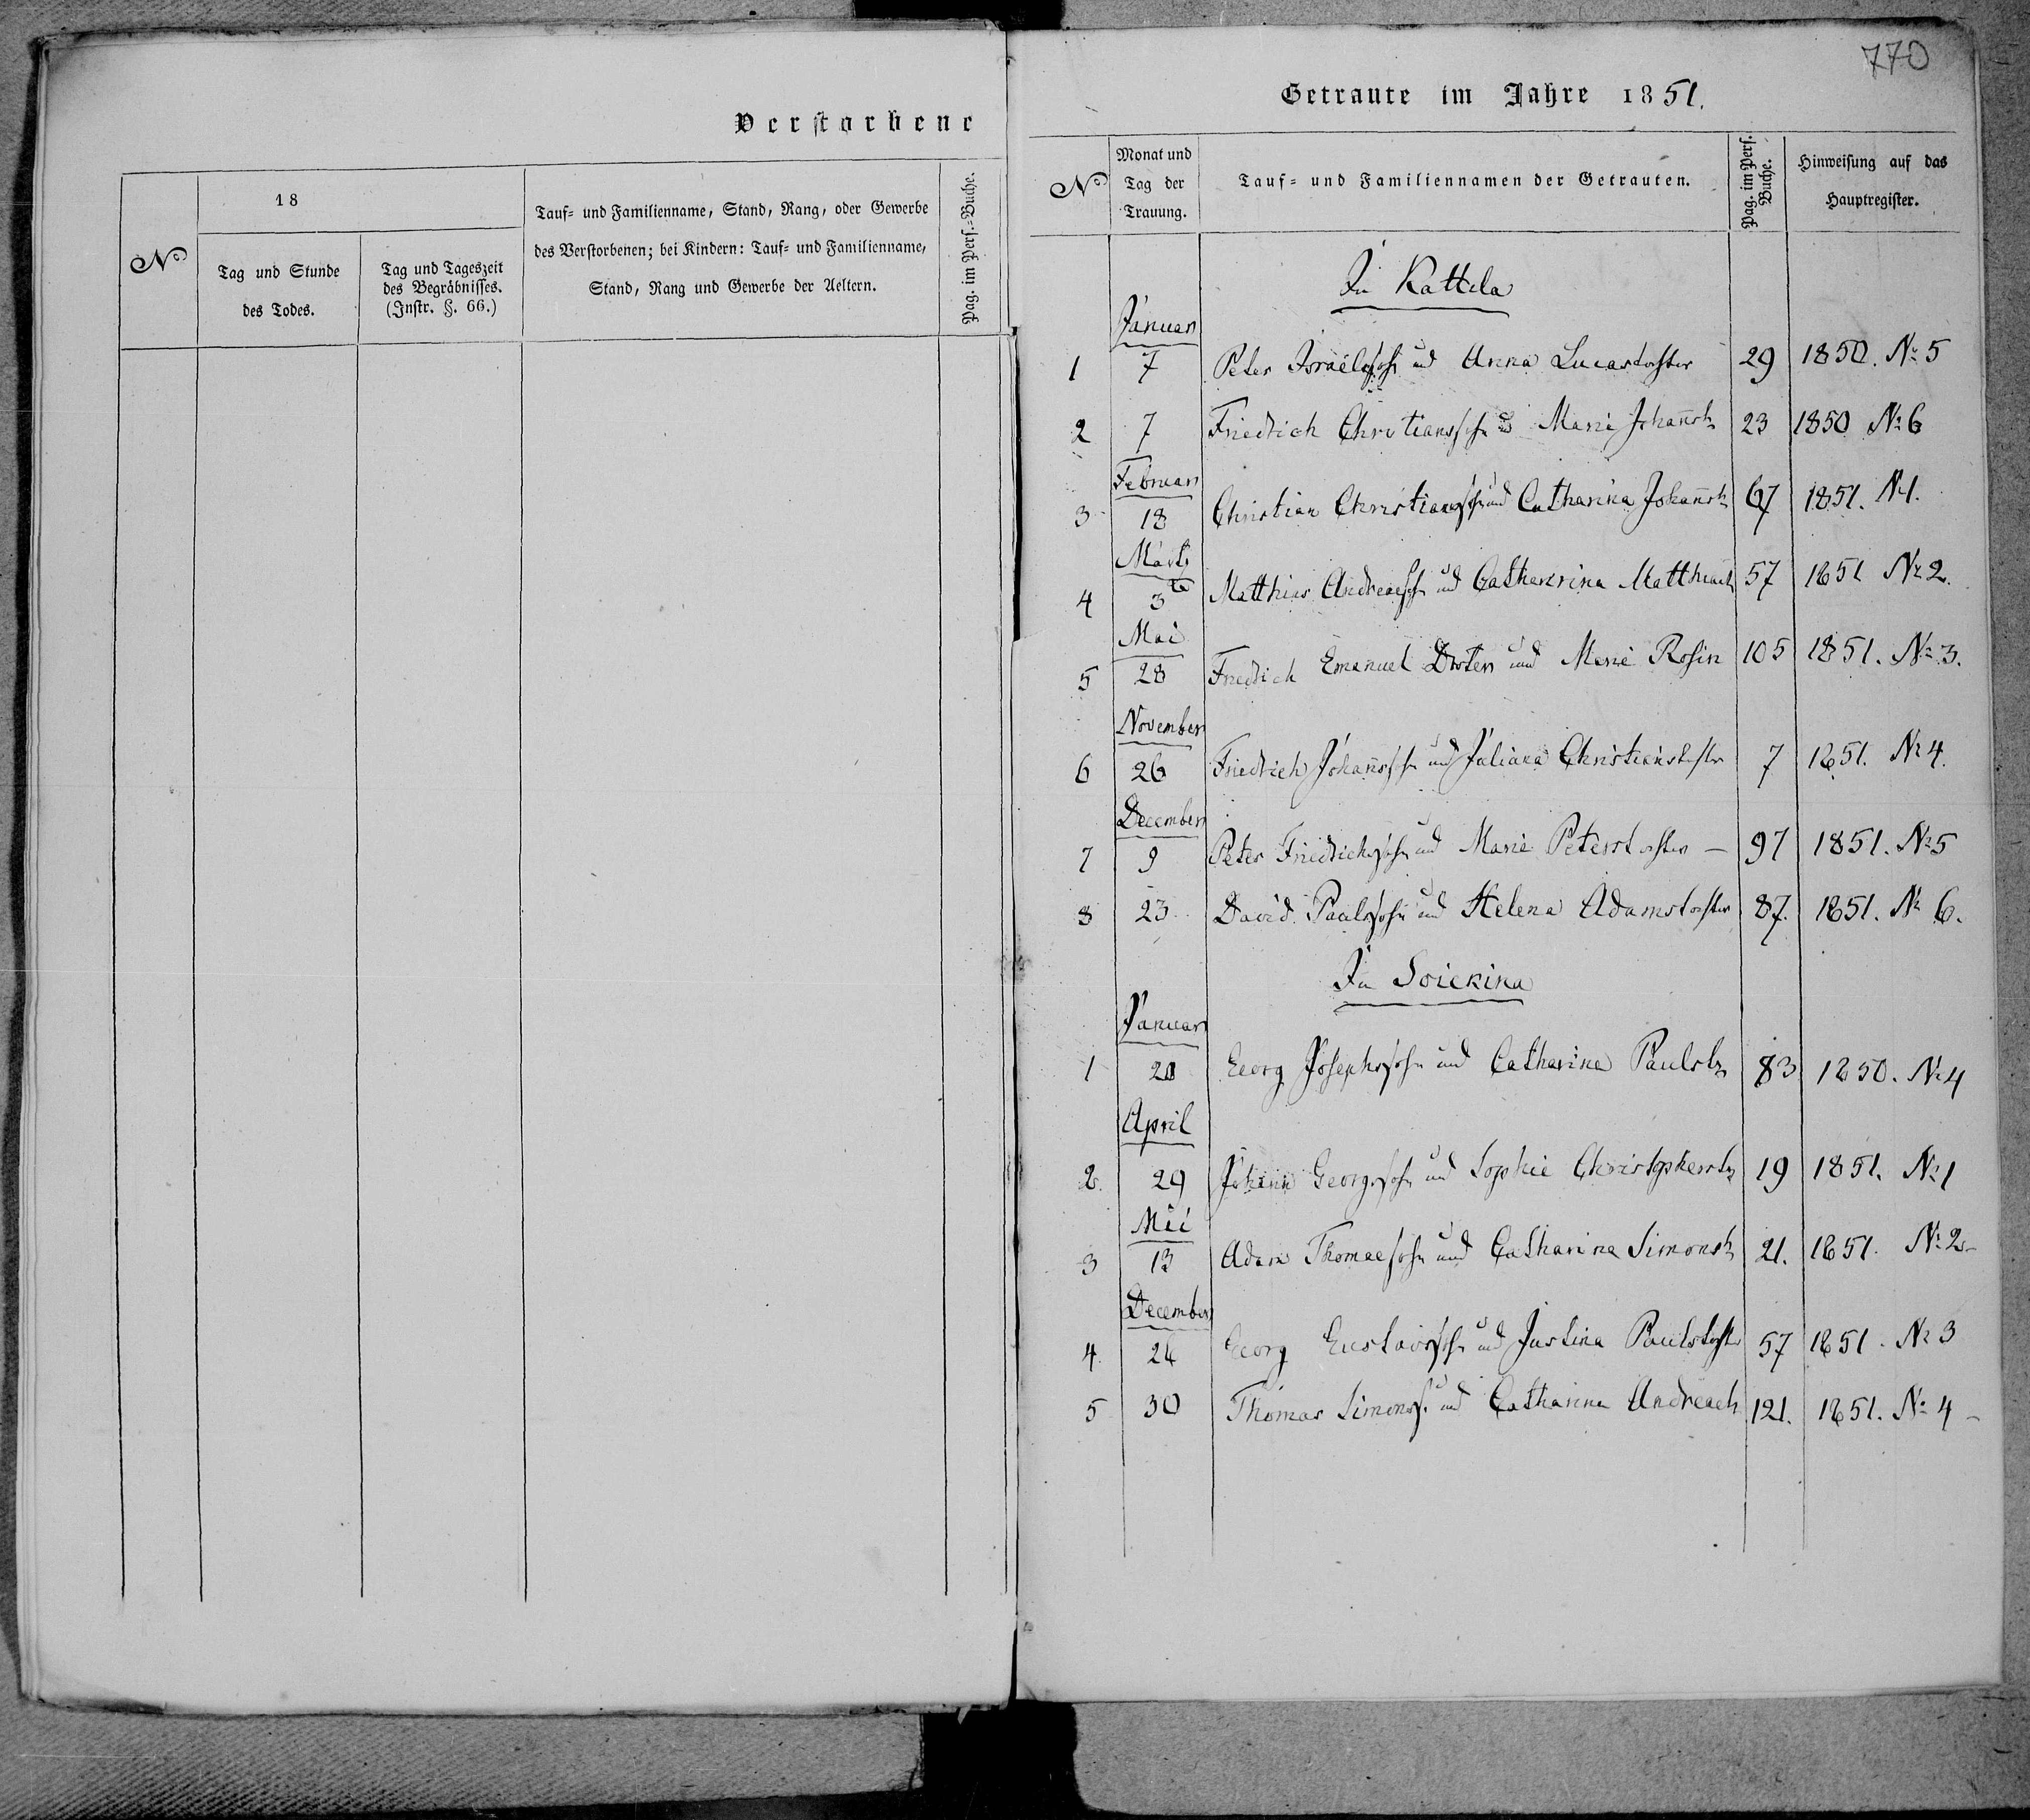 Verstorbene
N°
18
Tag und Stunde
des Todes.
Tag und Tageszeit
des Begräbnisses.
(Instr. §. 66.)
Tauf- und Familienname, Stand, Rang, oder Gewerbe
des Verstorbenen; bei Kindern: Tauf- und Familienname,
Stand, Rang und Gewerbe der Aeltern.
Pag. im Pers.-Buche.
770
Getraute im Jahre 1851.
N°
Monat und
Tag der
Trauung.
Tauf- und Familiennamen der Getrauten.
Pag. im Pers.
Buche.
Hinweisung auf das
Hauptregister.
In Kattila
Januar
1 7 Peter Israelssohn und Anna Lucastochter 29 1850. N° 5
2 7 Friedrich Christianssohn u Marie Johannst. 23 1850 N° 6
Februar
3 18 Christian Christianssohn und Catharina Johannst. 67 1851. N° 1.
März
4 3 Matthias Andreassohn und Catharina Matthiast. 57 1851 N° 2.
Mai
5 28 Friedrich Emanuel und Marie Rosin 105 1851. N° 3.
November
6 26 Friedrich Johannssohn und Juliana Christianstochter 7 1851. N° 4.
December
7 9 Peter Friedrichssohn und Marie Peterstochter — 97 1851. N° 5
8 23. David Paulssohn und Helena Adamstochter 87. 1851. N° 6.
In Soickina
Januar
1 Georg Josephssohn und Catharina Paulst. 83 1850. N° 4
April
2. 29 Johann Georgssohn und Sophie Christopherst. 19 1851. N° 1
Mai
3 13 Adam Thomassohn und Catharina Simonst. 21. 1851. N° 2-
December
4. 26 Georg Gustavssohn und Justina Paulstochter 57 1851. N° 3
5 30 Thomas Simonss. und Catharina Andreast. 121. 1851. N° 4 -